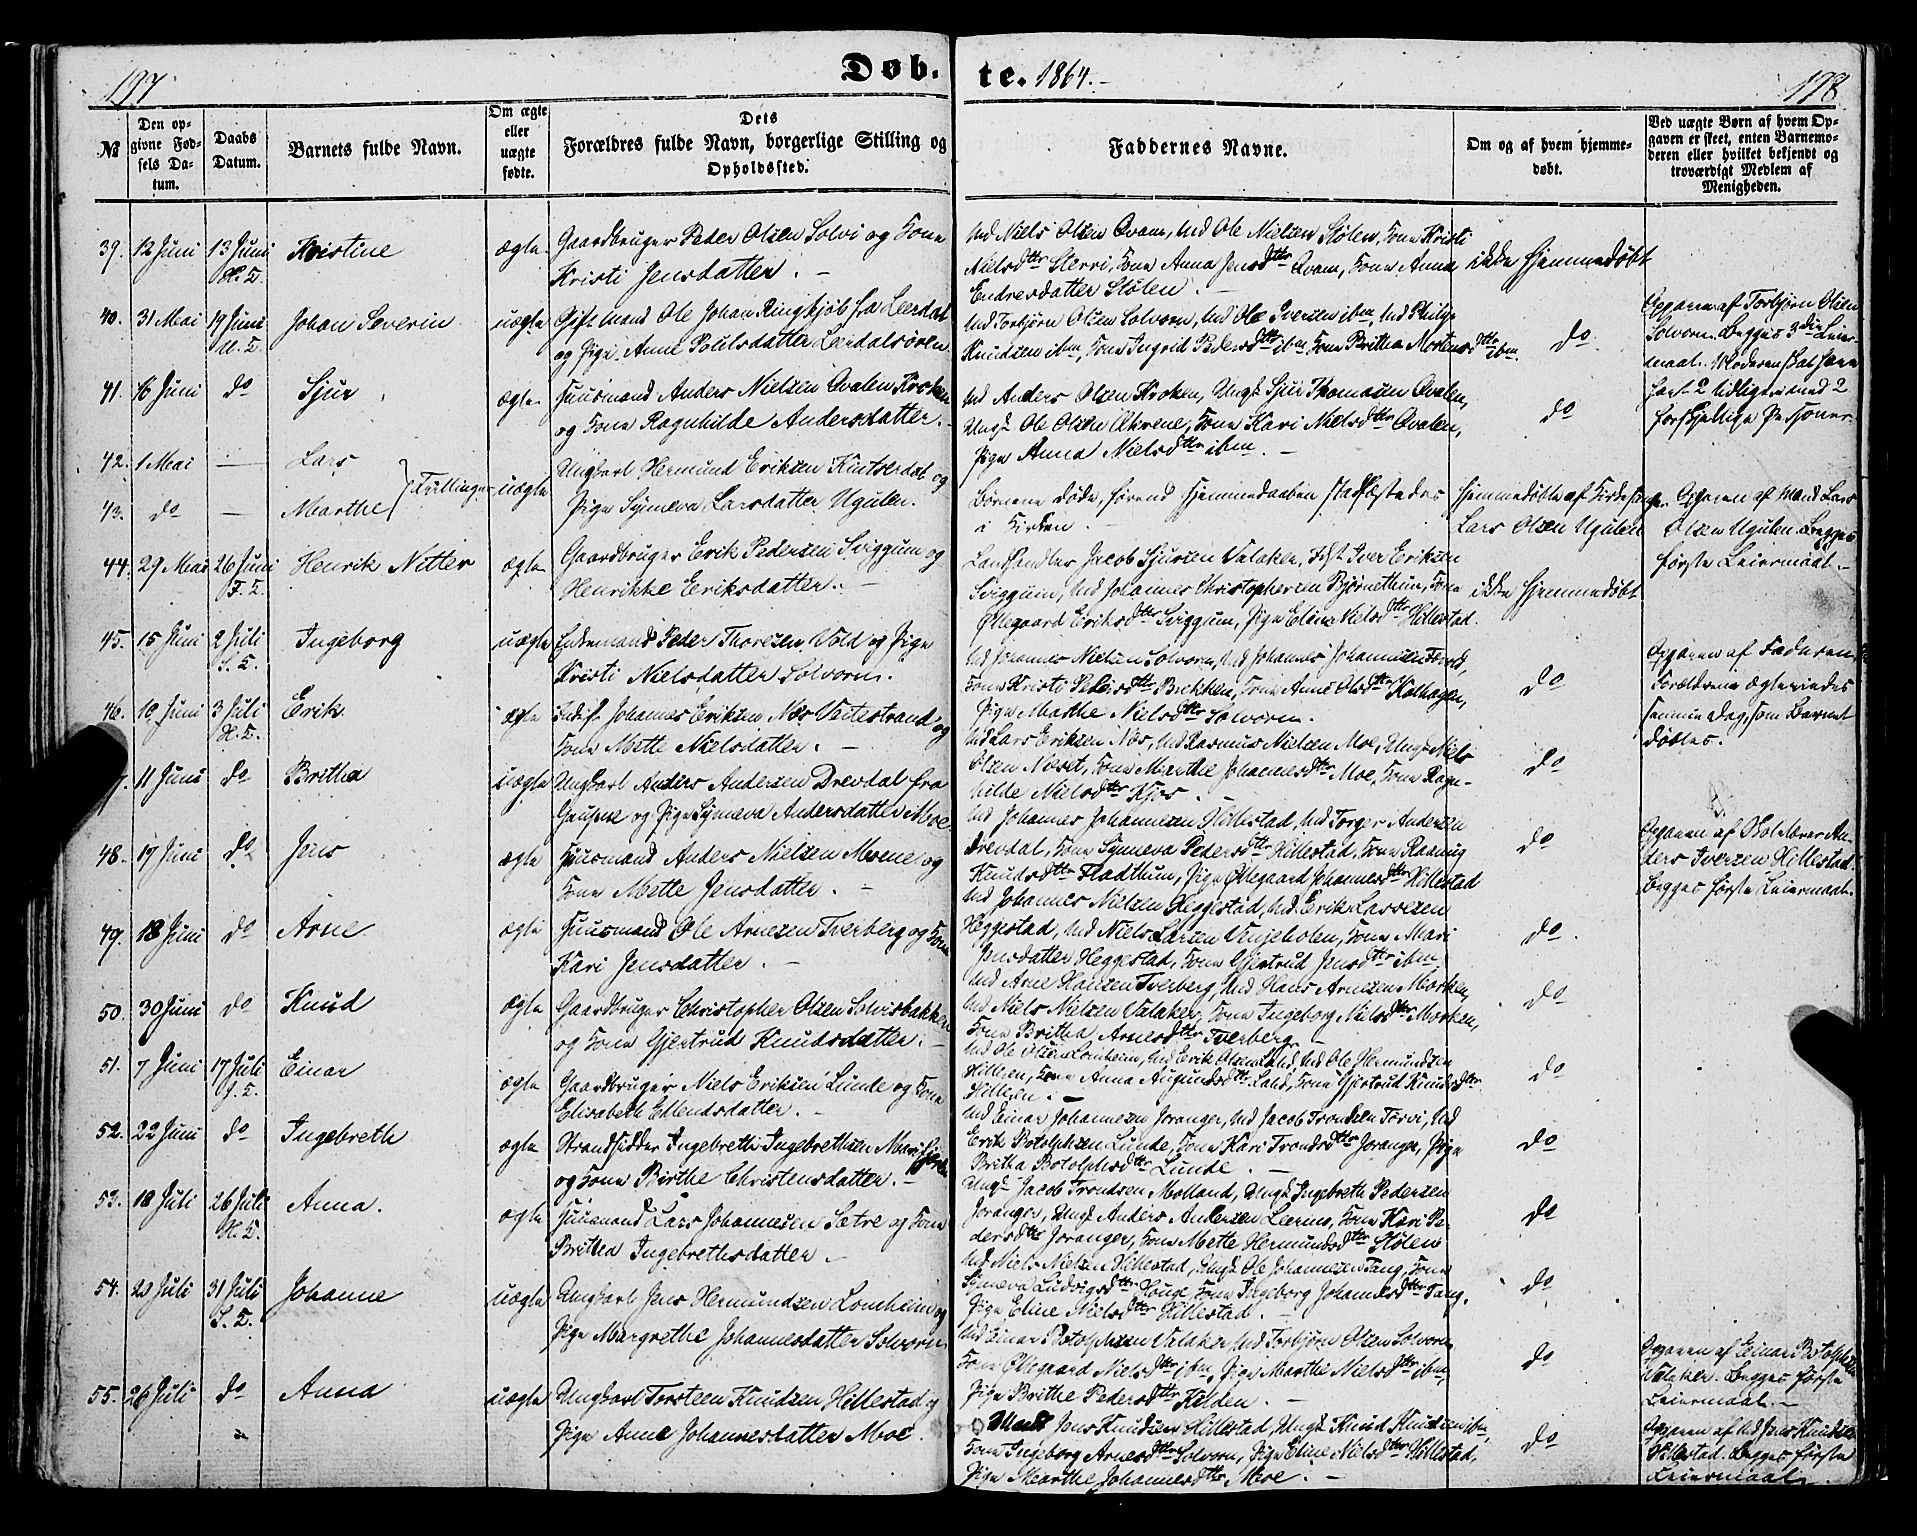 197.
Døb- te. 1864.-
178
№
Den opgivne Fødsels Datum.
Daabs Datum.
Barnets fulde Navn.
Om ægte eller uægte fødte.
Dets Forældres fulde Navn, borgerlige Stilling og Opholdssted.
Faddernes Navne.
Om og af hvem hjemmedøbt.
Ved uægte Børn af hvem Opgaven er skeet, enten Barnemoderen eller hvilket bekjendt og troværdigt Medlem af Menigheden.
39. 12 Juni 13 Juni Kristine ægte Gaardbruger Peder Olsen Solvi og Kone
Kristi Jensdatter. -
Md Niels Olsen Qvam, Md Ole Nielsen Stølen, Kone Kristi
Nielsdtr Sterri, Kone Anna Jensdtr Qvam, Kone Anna
Endresdatter Stølen. -
ikke hjemmedøbt
40. 31 Mai 19 Juni Johan Severin uægte Gift Mand Ole Johan Ringkjøb fra Leerdal
og Pige Anne Poulsdatter Leerdalsøren
Md Torbjørn Olsen Solvorn, Md Ole Iversen ibm, Md Philip
Knudsen ibm, Kone Ingrid Pedersdtr ibm, Kone Britha Mortensdtr ibm.
do
Opgaven af Torbjørn Olsen
Solvorn. Begges 3die Leiermaal. Moderen skal have
havt 2 tidligere med 2
forskjellige Personer.
41. 16 Juni do Sjur ægte Huusmand Anders Nielsen Qvalen Kroken
og Kone Ragnhilde Andersdatter. -
Md Anders Olsen Kroken, Ungk Sjur Thomasen Qvalen,
Ungk Ole Olsen, Kone Kari Nielsdtr Qvalen,
Pige Anna Nielsdtr ibm. -
do
42. 1 Mai - Lars
43. do - Marthe
Tvillinger uægte Ungkarl Hermund Eriksen Kinserdal og
Pige Synneva Larsdatter Ugulen.
Børnene døde, førend Hjemmedaaben stadfæstedes
i Kirken. -
Hjemmedøbte af Kirkesanger
Lars Olsen Ugulen
Opgaven af Mand Lars
Olsen Ugulen. Begges
første Leiermaal. -
44. 29 Mai 26 Juni Henrik Nitter ægte Gaardbruger Erik Pedersen Sviggum og
Henrikke Eriksdatter. -
Landhandler Jacob Sjursen Valaker, Iver Eriksen
Sviggum, Md Johannes Christophersen Bjørnethun, Kone
Ollegaard Eriksdtr Sviggum, Pige Eline Nielsdtr Hillestad.
ikke hjemmedøbt
45. 15 Juni 2 Juli Ingeborg uægte Enkemand Peder Thoresen Vold og Pige
Kristi Nielsdatter Solvorn.
Md Johannes Nielsen Solvorn, Md Johannes Johannesen,
Kone Kristi Pedersdtr Brekken, Kone Anne Olsdtr Kolhagen,
Pige Marthe Nielsdtr Solvorn.
do
Opgaven af Faderen.
Forældrene ægteviedes
samme Dag, som Barnet
døbtes.
46. 10 Juni 3 Juli Erik ægte Johannes Eriksen Næs Veitestrand og
Kone Mette Nielsdatter. -
Md Lars Eriksen Næs, Md Rasmus Nielsen Moe, Ungk Niels
Olsen Næset, Kone Marthe Johannesdtr Moe, Kone Ragnhilde Nielsdtr Kjos. -
do
11 Juni do Britha uægte Ungkarl Anders Andersen Drevdal fra
Gaupne og Pige Synneva Andersdatter Moe
Md Johannes Johannesen Hillestad, Md Torger Andersen
Drevdal, Kone Synneva Pedersdtr Hillestad, Kone Raanug
Knudsdtr Flaathun, Pige Ollegaard Johannesdtr Hillestad
do
Opgaven af Skolelærer Anders Iversen Hillestad.
Begges første Leiermaal. -
48. 17 Juni do Jens ægte Huusmand Anders Nielsen Moene og
Kone Mette Jensdatter. -
Md Johannes Nielsen Heggestad, Md. Erik Lassesen
Heggestad, Md Niels Larsen Vinjeholen, Kone Mari
Jensdatter Heggestad, Kone Gjertrud Jensdtr ibm
49. 18 Juni do Arne ægte Huusmand Ole Arnesen Tverberg og Kone
Kari Jensdatter. -
Md Arne Hansen Tverberg, Md Hans Arnesen Morken,
Md Niels Nielsen Valaker, Kone Ingeborg Nielsdtr Morken,
Kone Britha Arnesdtr Tverberg -
do
50. 30 Juni do Knud ægte Gaardbruger Christopher Olsen Solvisbakken
og Kone Gjertrud Knudsdatter. -
Md Ole Olsen Lomheim, Md Erik Olsen Lund, Md Ole Hermundsen
Hilleren, Kone Anna Augundsdtr Lund, Kone Gjertrud Knudsdtr
Hilleren. -
do
51. 7 Juni 17 Juli Einar ægte Gaardbruger Niels Eriksen Lunde og Kone
Elisabeth Ellendsdatter. -
Md Einar Johannesen Joranger, Md Jacob Trondsen Torvi, Md
Erik Botolphsen Lunde, Kone Kari Trondsdtr Joranger, Pige
Britha Botolphsdtr Lunde. -
do
52. 22 Juni do Ingebreth ægte Strandsidder Ingebreth Ingebrethsen Marifjæren
og Kone Birthe Christensdatter. -
Ungk Jacob Trondsen Molland, Ungk Ingebreth Pedersen
Joranger, Ungk Anders Andersen Leermo, Kone Kari Pedersdtr Joranger, Kone Mette Hermundsdtr Stølen
do
53. 18 Juli 26 Juli Anna. ægte Huusmand Lars Johannesen Sætre og Kone
Britha Ingebrethsdatter -
Md Niels Nielsen Hillestad, Ungk Ole Johannesen Tang, Kone
Synneva Ludvigsdtr Houge, Kone Ingeborg Johannesdtr Tang,
Pige Eline Nielsdtr Hillestad. -
do
54. 20 Juli 31 Juli Johanne uægte Ungkarl Jens Hermundsen Lomheim og
Pige Margrethe Johannesdatter Solvorn
Md Einar Botolphsen Valaker, Md Torbjørn Olsen Solvorn,
Kone Ollegaard Nielsdtr ibm, Pige Marthe Nielsdtr ibm,
Pige Brithe Pedersdtr Kilden. -
do
Opgaven af Einar Botolphsen
Valaker. Begges første
Leiermaal. -
55. 26 Juli do Anna uægte Ungkarl Torsteen Knudsen Hillestad og
Pige Anne Johannesdatter Moe.
Mand Jens Knudsen Hillestad, Ungk Knud Knudsen ibm,
Kone Ingeborg Arnesdtr Solvorn, Pige Eline Nielsdtr Hillestad,
Pige Marthe Johannesdtr Moe. -
do
Opgaven af Md Jens Knudsen
Hillestad. Begges første
Leiermaal.